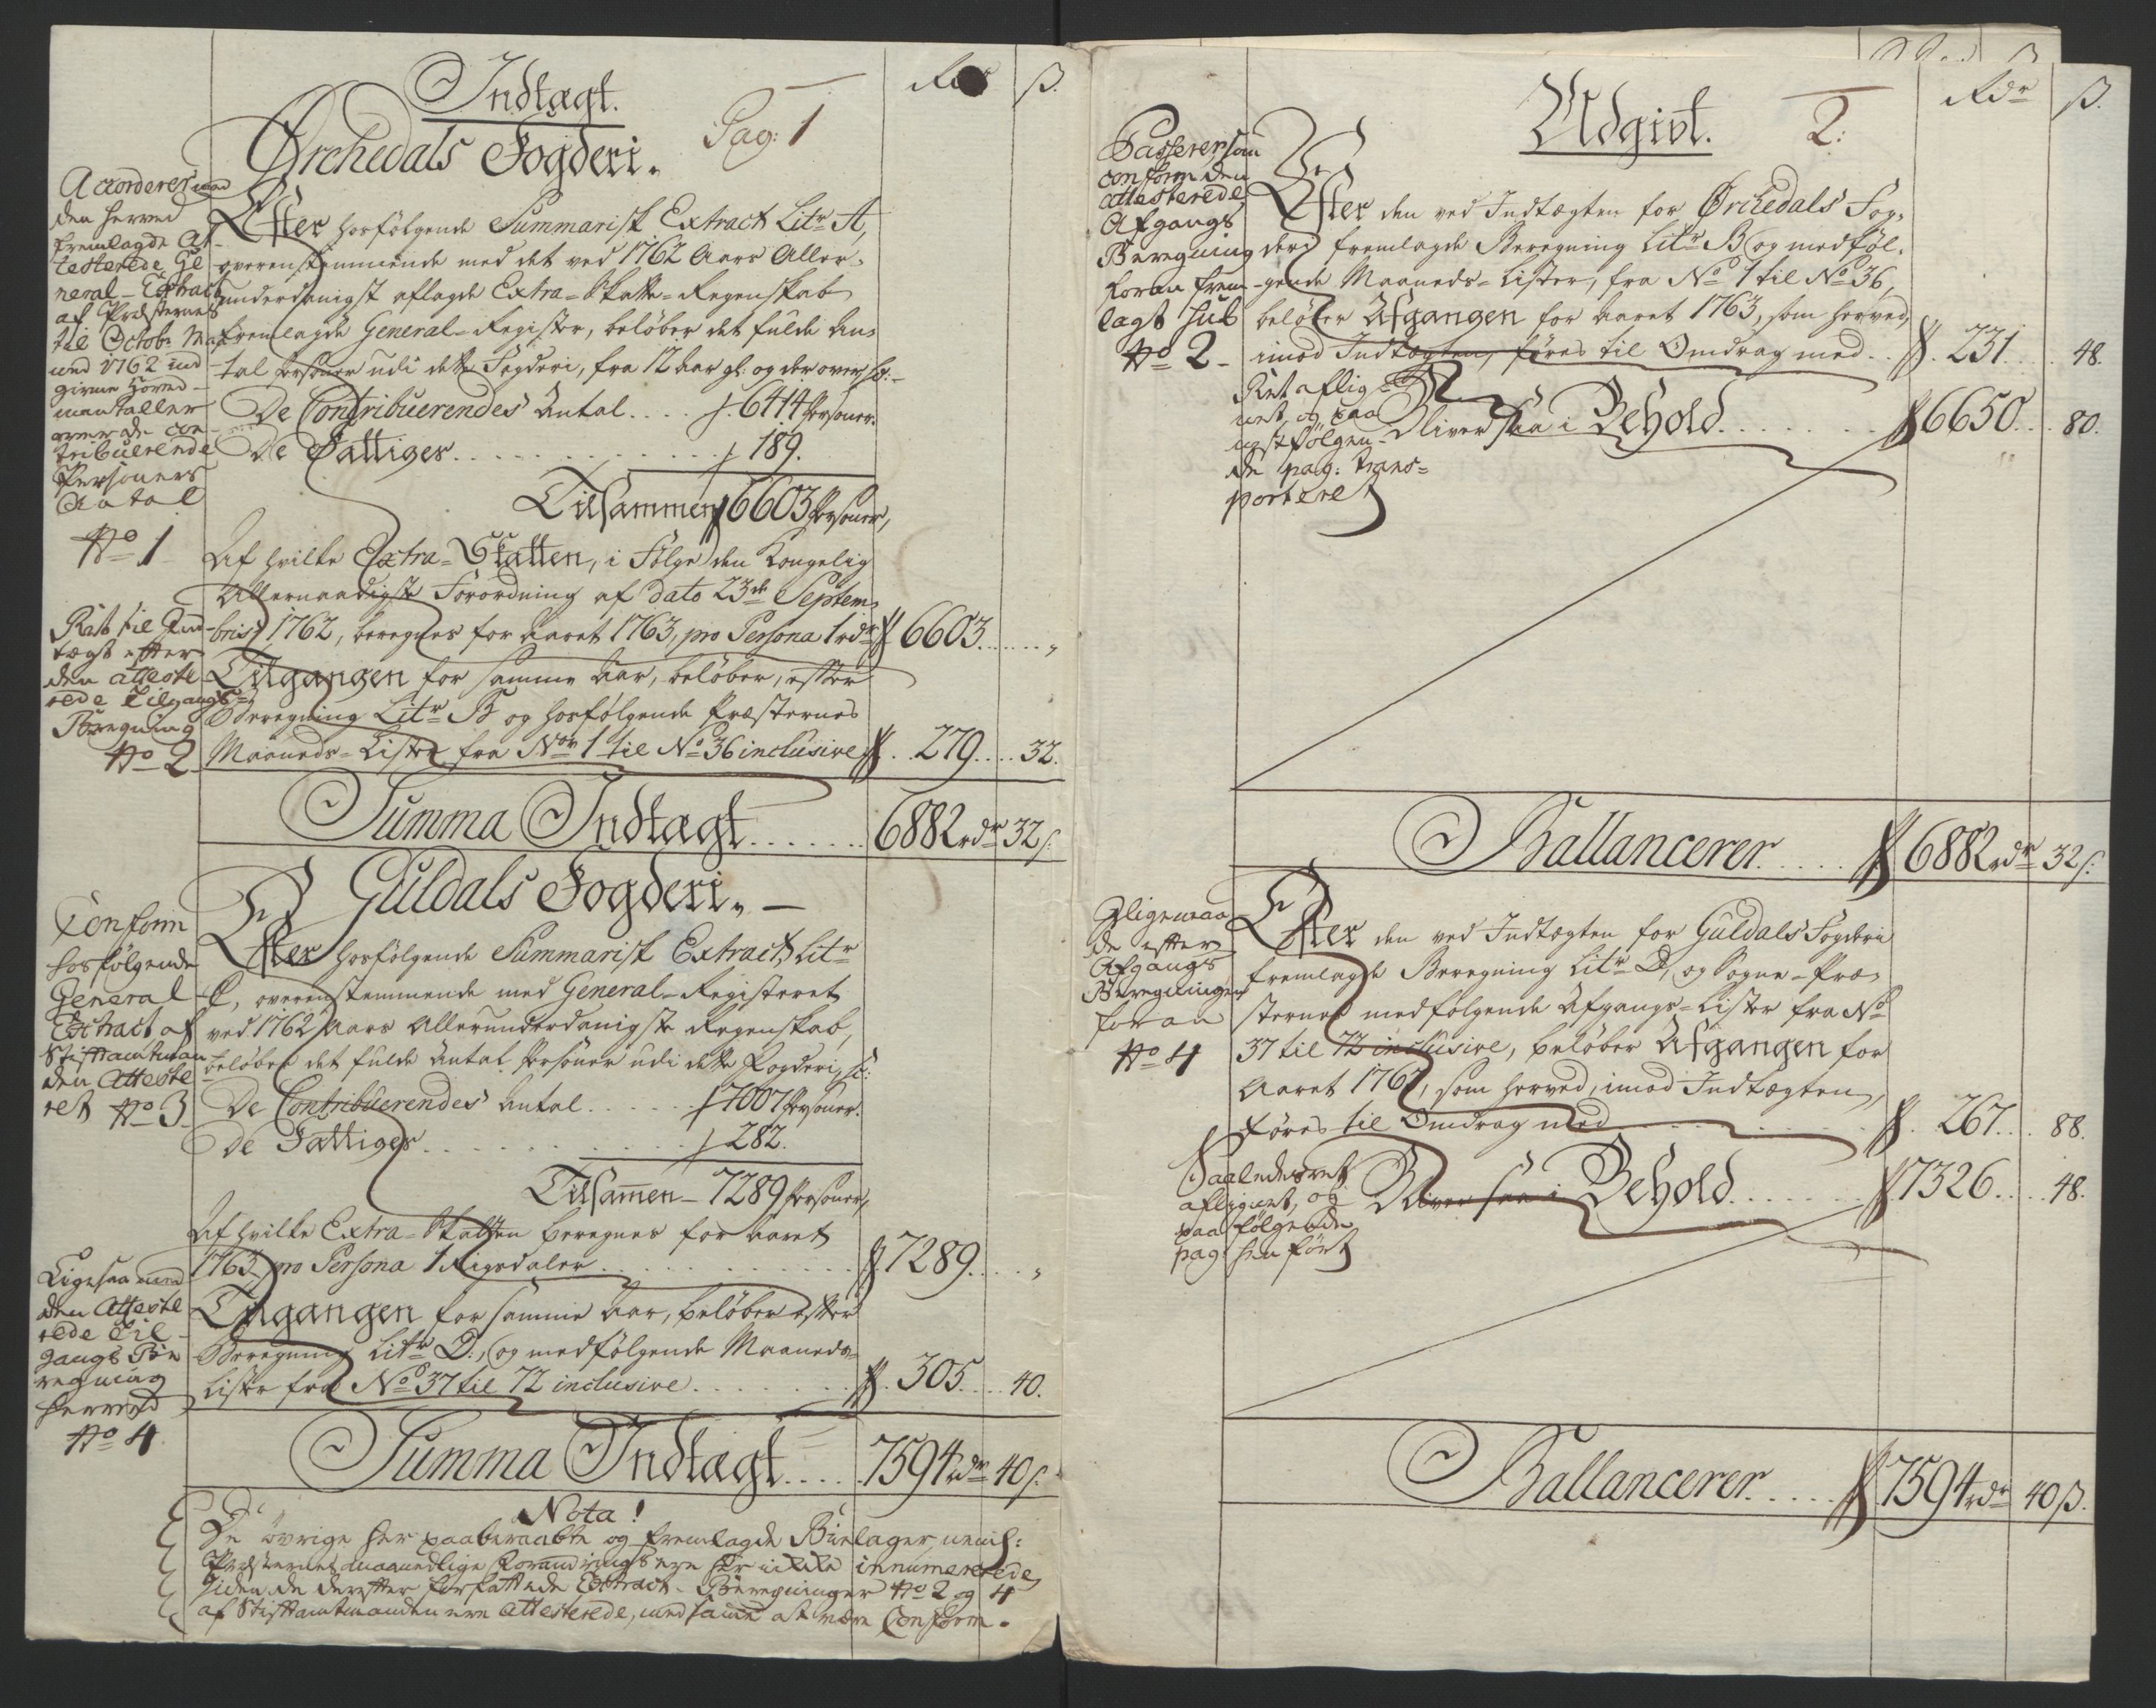 Indtægt.
Pag: 1
Rdr ß.
Ørchedals Fogderi.
Accorderer med
den herved
fremlagde At-
testerede Ge
neral-Extract
af Præsternes
til Octobr Ma
ned 1762 ind
givne Hoved-
mandtaller
over de con-
tribuerende
Personers
Antal
No 1
Efter hosfölgende Summarisk Extract Litr A,
overensstemmende med det ved 1762 Aars Aller-
underdanigst aflagde Extra-Skatte-Regenskab
fremlagde General-Register, belöber det fulde An-
tal Personer udi dette Fogderi, fra 12 Aar gl: og derover, sc:
De Contribuerendes Antal.... 6414 Personer.
De Fattiges............ 189.
Tilsammen 6603 Personer,
Af hvilke Extra-Skatten, i Fölge den Kongelig
Allernaadigste Forordning af dato 23de Septem-
bris 1762, beregnes for Aaret 1763, pro Persona 1 rdr 6603......„
Ret til Ind-
tægt efter
den atteste
rede Tilgangs
Beregning
No 2
Tilgangen for samme Aar, belöber, efter
Beregning Litr B og hosfölgende Præsternes
Maaneds-Lister fra Nor 1 til No 36 inclusive 279.... 32.
Summa Indtægt....... 6882 rdr 32 ß.
Guldals Fogderi.
Conform
hosfölgende
General
Extract af
Stiftamtman-
den Atteste
ret No 3
Efter hosfölgende Summarisk Extract, Litr
C, overensstemmende med General-Registeret
ved 1762 Aars Allerunderdanigste Regenskab,
belöber det fulde Antal Personer udi dette Fogderi, sc:
De Contribuerendes Antal...... 7007 Personer.
De Fattiges............ 282.
Tilsammen - 7289 Personer,
Af hvilke Extra-Skatten beregnes for Aaret
1763, pro Persona 1 Rigsdaler............ 7289.....„
Ligesaa med
den Atteste
rede Til-
gangs Be
regning
herved
No 4
Tilgangen for samme Aar, belöber efter
Beregning Litr D., og medfölgende Maaneds-
Lister fra No 37 til 72 inclusive........ 305.... 40.
Summa Indtægt.... 7594 rdr 40 ß.
Nota!
De övrige her paaberaabte og fremlagde Bielager, neml:
Præsternes maanedlige Forandrings ere her ikke innumererede,
siden de derefter forfattede Extract-Beregninger No 2 og 4
af Stiftamtmanden ere Attesterede, med samme at være Conform.
Udgivt.
2:
Rdr ß.
Passerer, som
conform den
attesterede
Afgangs
Beregning
foran frem-
lagt sub
No 2
Efter den ved Indtægten for Ørchedals Fog-
deri fremlagde Beregning Litr B og medföl-
gende Maaneds-Lister, fra No 1 til No 36,
belöber Afgangen for Aaret 1763, som herved,
imod Indtægten, föres til Omdrag med.. 231.... 48.
Ret aflig-
net, og paa
næstfölgen-
de pag: trans-
porteret
Bliver saa i Behold........ 6650... 80.
Ballancerer..... 6882 rdr 32 ß.
Ligemaa
de efter
Afgangs
Beregningen
foran
No 4
Efter den ved Indtægten for Guldals Fogderi
fremlagde Beregning Litr D, og Sogne-Præ-
sternes medfölgende Afgangs-Lister fra No
37 til 72 inclusive, belöber Afgangen for
Aaret 1763, som herved, imod Indtægten,
föres til Omdrag med............ 267... 88.
Saaledes ret
aflignet, og
paa fölgende
pag: hen fört
Bliver saa i Behold....... 7326.... 48.
Ballancerer..... 7594 rdr 40 ß.